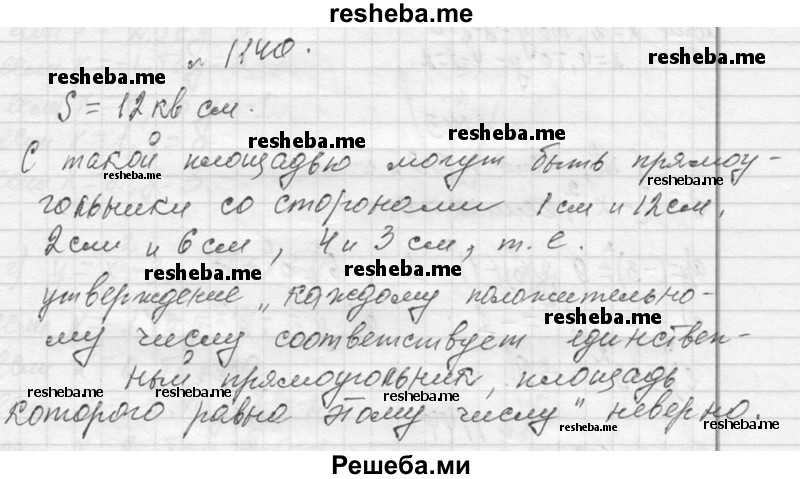 resheba.me
№ 1140.
resheba.me
resheba.me
S = 12 кв см.
resheba.me
resheba.me
С такой площадью могут быть прямоу-
resheba.me
resheba.me
гольники со сторонами 1 см и 12 см,
2 см и 6 см, 4 и 3 см, т. е.
resheba.me
resheba.me
утверждение „каждому положительно-
resheba.me
му числу соответствует единствен-
ный прямоугольник, площадь
resheba.me
resheba.me
которого равна этому числу" неверно.
resheba.me
resheba.me
Решеба.ми